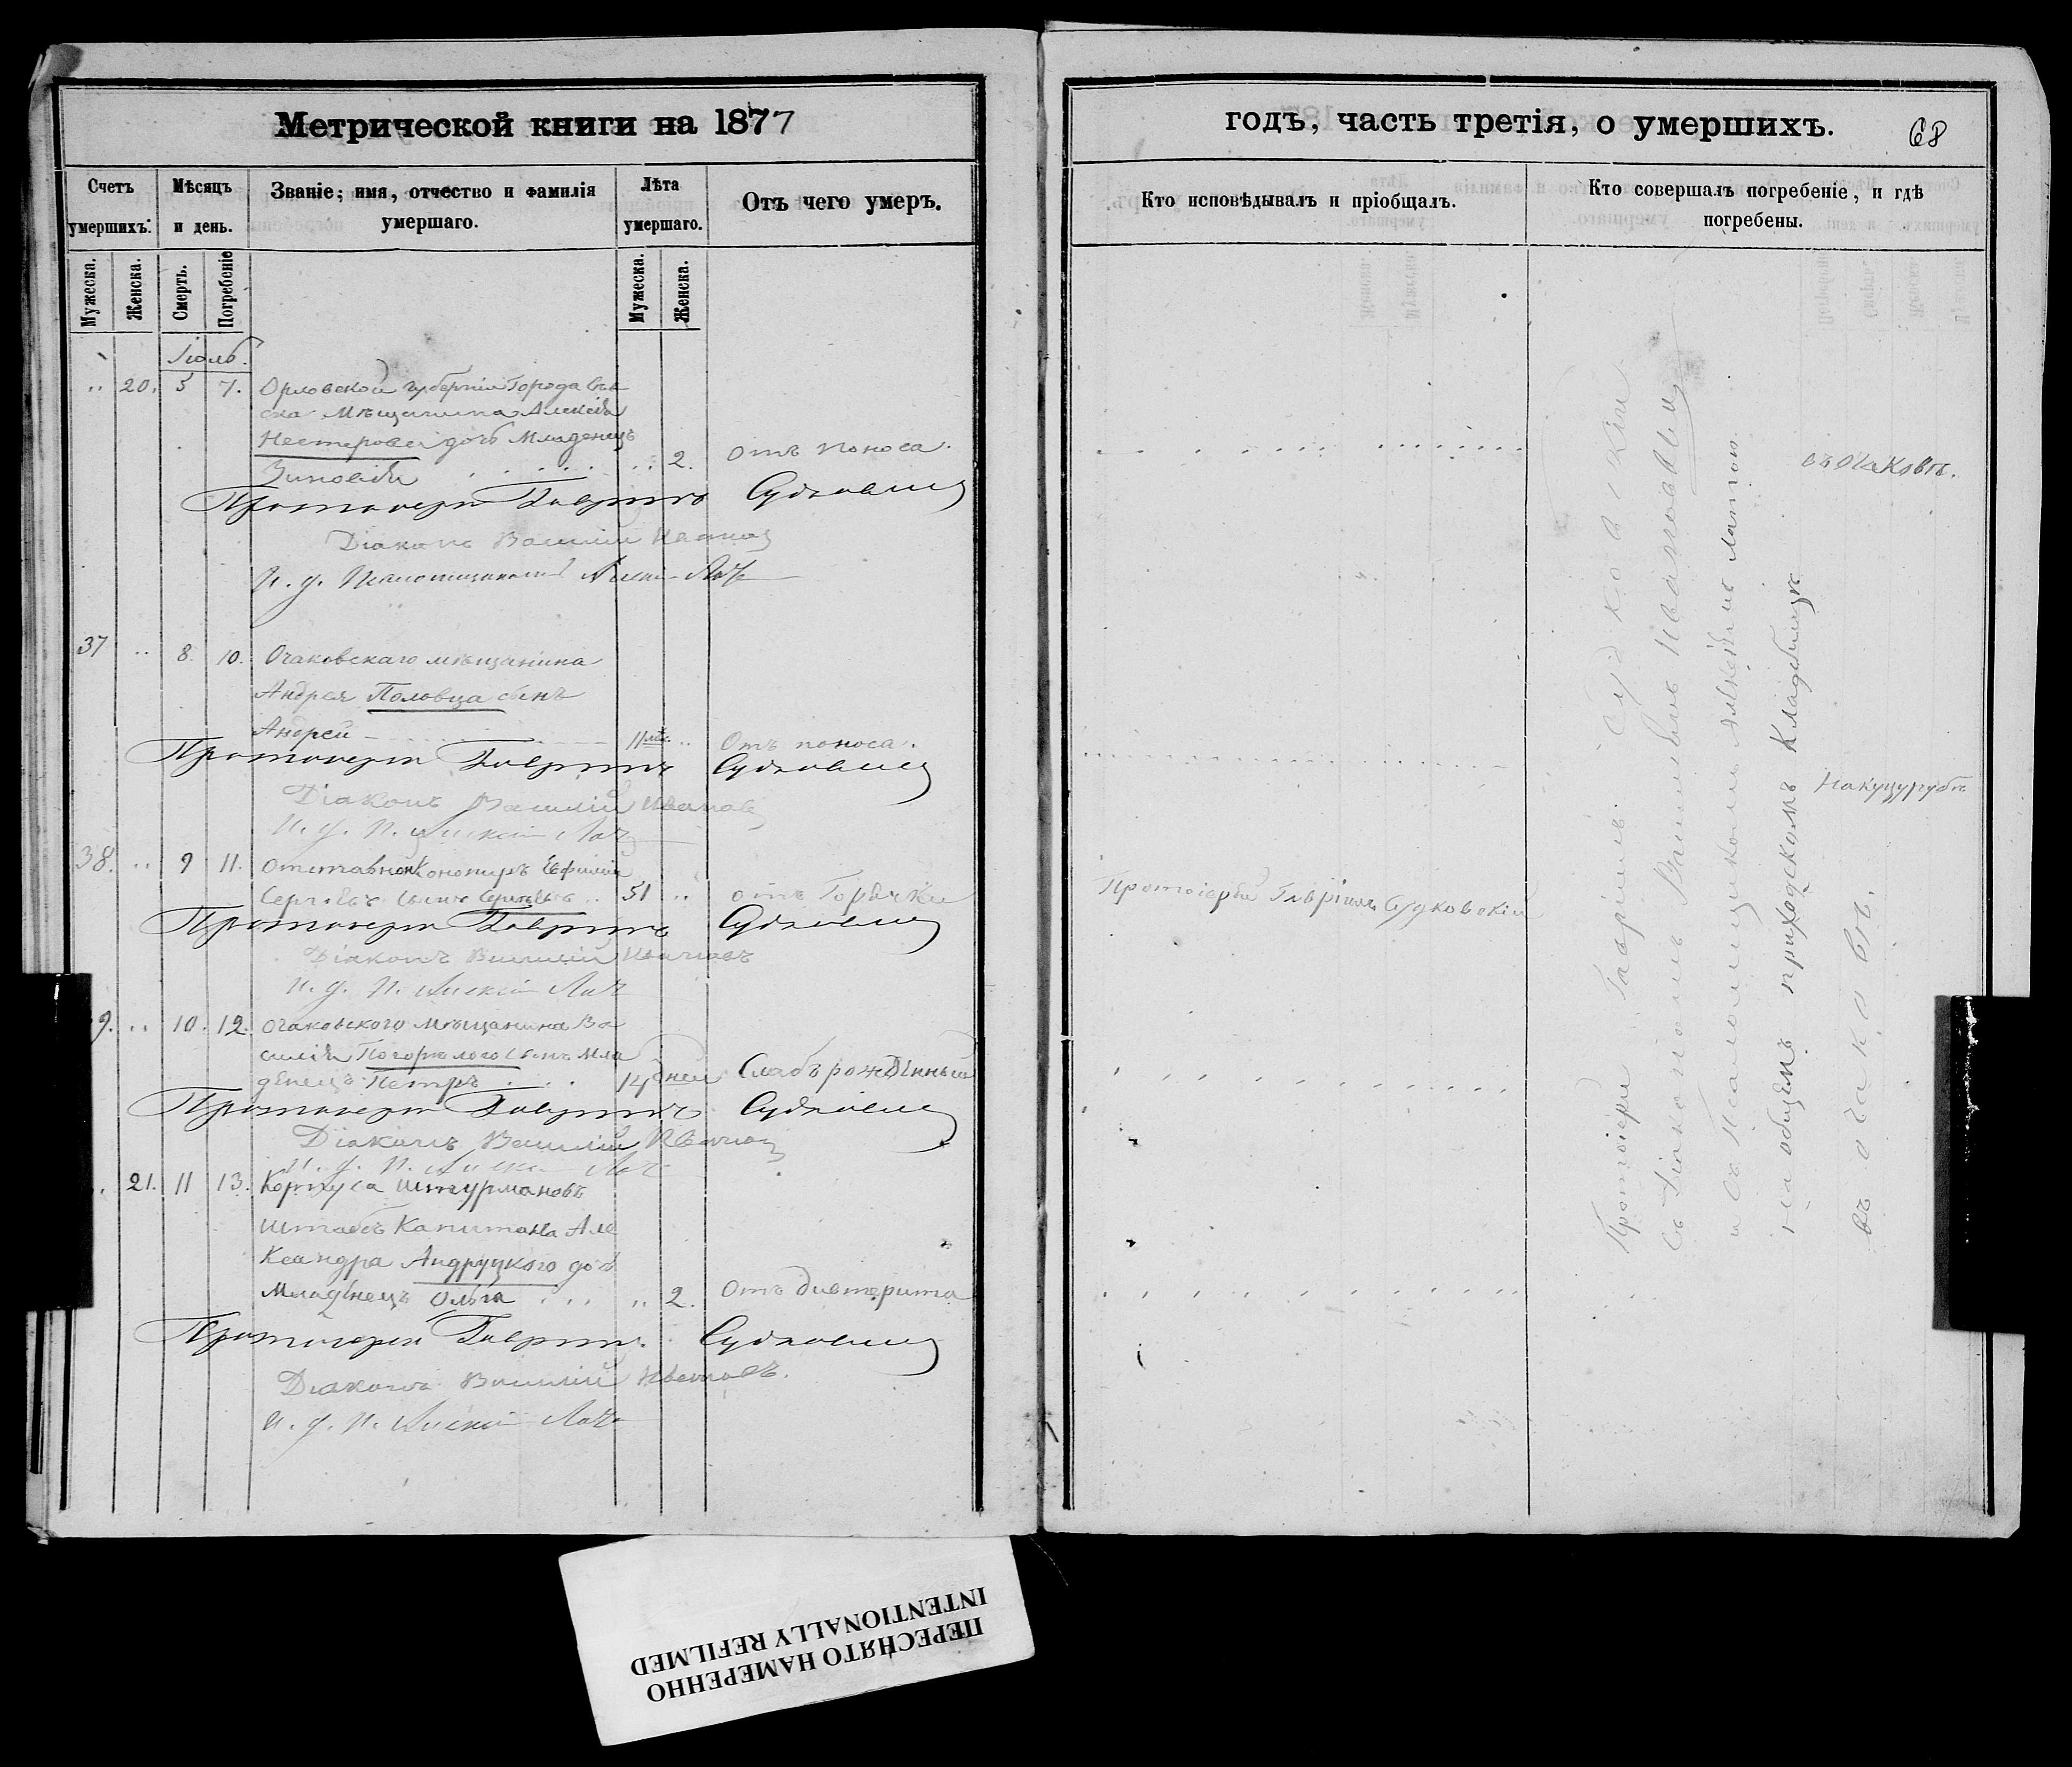 Метрической книги на 1877
Счетъ умершихъ.
Мѣсяцъ и день.
Званіе; имя, отчество и фамилія умершаго.
Лѣта умершаго.
Отъ чего умеръ.
Мужеска.
Женска.
Смерть.
Погребеніе
Мужеска.
Женска.
Іюль.
20. 5 7. Орловской губерніи Города Сѣв
ска Мѣщанина Алексѣя
Нестерова дочь Младенецъ
Зиновія 2. Отъ поноса.
Протоіерей Гавріилъ Судковскій
Діаконъ Василій Ивановъ
И. д. Псаломщика
37 8. 10. Очаковскаго мѣщанина
Андрея Половца сынъ
Андрей 11 мѣс. Отъ поноса.
Протоіерей Гавріилъ Судковскій
Діаконъ Василій Ивановъ
И. д. П.
38. 9 11. Отставной Канониръ Ефимій
Сергѣевъ сынъ Сергѣевъ 51 отъ Горячки
Протоіерей Гавріилъ Судковскій
Діаконъ Василій Ивановъ
И. д. П.
9. 10. 12. Очаковского Мѣщанина Ва
силія Погорѣлого сынъ Мла
денецъ Петръ 14 дней Слабъ рожденный
Протоіерей Гавріилъ Судковскій
Діаконъ Василій Ивановъ
И. д. П.
21. 11 13. Корпуса Штурмановъ
Штабсъ Капитана Але
ксандра Андруцкого дочь
Младенецъ Ольга 2. Отъ дифтерита
Протоіерей Гавріилъ Судковскій
Діаконъ Василій Ивановъ.
И. д. П.
годъ, часть третія, о умершихъ.
68
Кто исповѣдывалъ и пріобщалъ.
Кто совершалъ погребеніе, и гдѣ погребены.
въ Очаковѣ.
На Куцурубѣ
Протоіерей Гавріилъ Судковскій
Протоіерей Гавріилъ Судковскій
съ Діакономъ Василіемъ Ивановымъ
и съ Псаломщикомъ Алексѣемъ
на общемъ приходскомъ Кладбищѣ
въ Очаковѣ.
ПЕРЕСНЯТО НАМЕРЕННО
INTENTIONALLY REFILMED